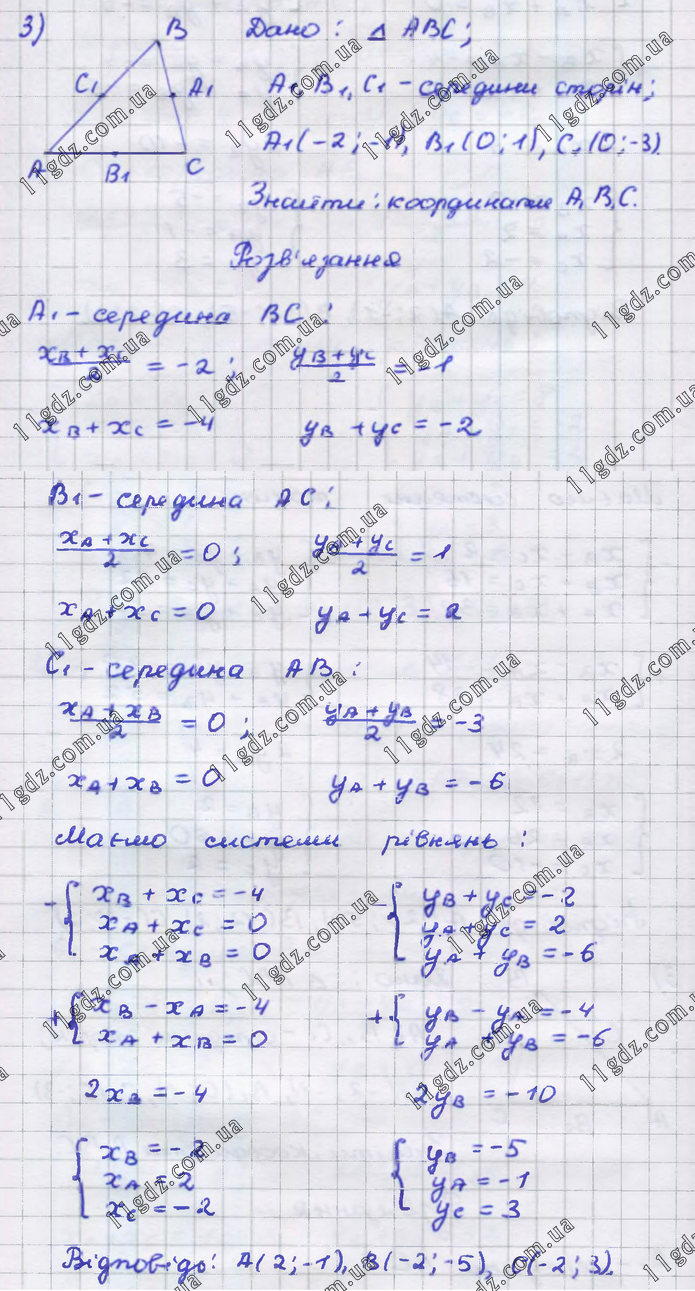 3)
B
C₁
A₁
A
B₁
C
Дано: △ ABC;
A₁, B₁, C₁ - середини сторін;
A₁(-2; -1), B₁(0; 1), C₁(0; -3)
Знайти: координати A, B, C.
Розв'язання
A₁ - середина BC:
(x_B + x_C)/2 = -2; (y_B + y_C)/2 = -1
x_B + x_C = -4 y_B + y_C = -2
B₁ - середина AC:
(x_A + x_C)/2 = 0; (y_A + y_C)/2 = 1
x_A + x_C = 0 y_A + y_C = 2
C₁ - середина AB:
(x_A + x_B)/2 = 0; (y_A + y_B)/2 = -3
x_A + x_B = 0 y_A + y_B = -6
Маємо системи рівнянь:
- { x_B + x_C = -4 - { y_B + y_C = -2
x_A + x_C = 0 y_A + y_C = 2
x_A + x_B = 0 y_A + y_B = -6
+ { x_B - x_A = -4 + { y_B - y_A = -4
x_A + x_B = 0 y_A + y_B = -6
2x_B = -4 2y_B = -10
{ x_B = -2 { y_B = -5
x_A = 2 y_A = -1
x_C = -2 y_C = 3
Відповідь: A(2; -1), B(-2; -5), C(-2; 3).
11gdz.com.ua